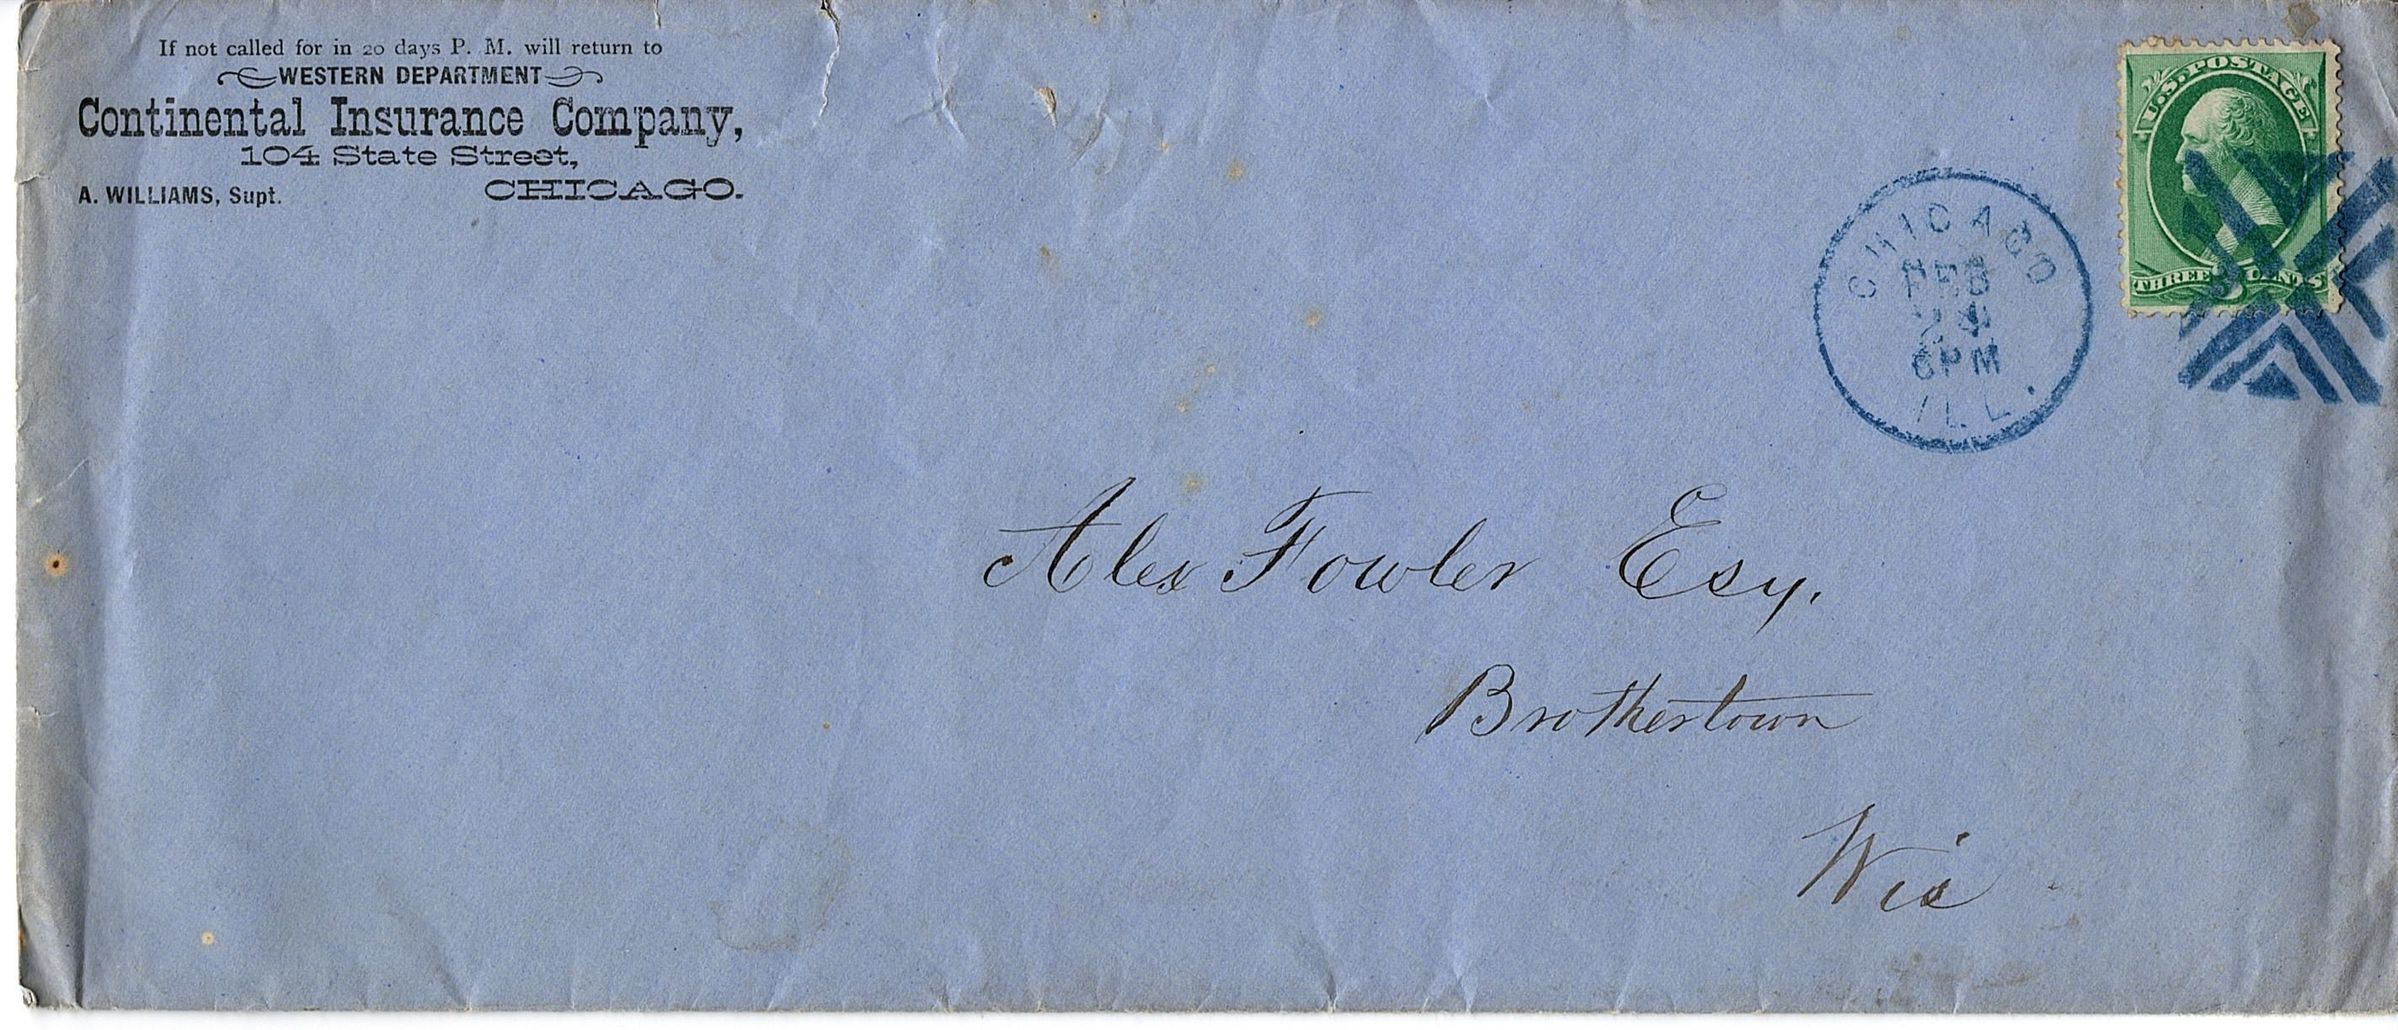 If not called for in 20 days P. M. will return to
WESTERN DEPARTMENT
Continental Insurance Company,
104 State Street,
A. WILLIAMS, Supt. CHICAGO.
U.S. POSTAGE
THREE 3 CENTS
CHICAGO
FEB
24
6PM
ILL.
Alex Fowler Esq.
Brothertown
Wis